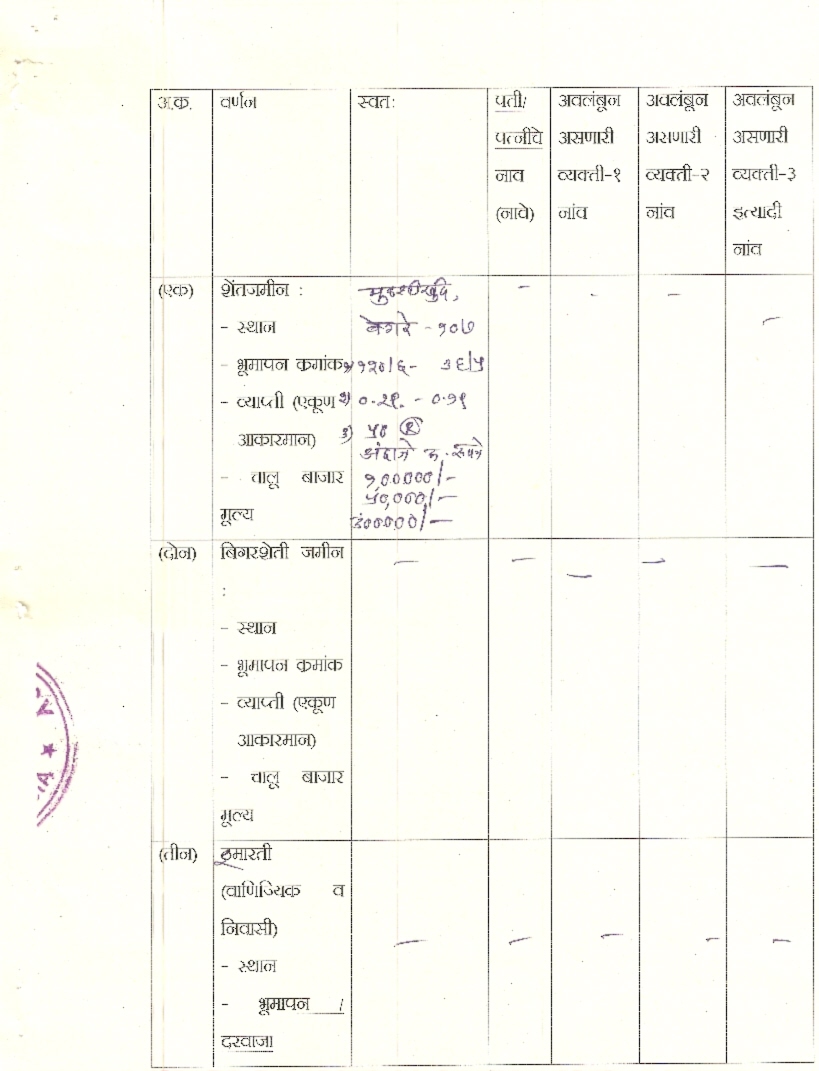 अ.क्र. वर्णन स्वतः पती/ अवलंबून अवलंबून अवलंबून
पत्नीचे असणारी असणारी असणारी
नाव व्यक्ती-१ व्यक्ती-२ व्यक्ती-३
(नावे) नांव नांव इत्यादी
नांव
(एक) शेंतजमीन : - - - -
- स्थान बेगरे - १०७
- भूमापन क्रमांक १२०/६ - ३६/५
- व्याप्ती (एकूण २) ०.२१. - ०.१९
आकारमान) ३) ५० R
अंदाजे रु. रुपये
- चालू बाजार १,०००००/-
५०,०००/-
मूल्य ३०००००/-
(दोन) बिगरशेती जमीन - - - - -
:
- स्थान
- भूमापन क्रमांक
- व्याप्ती (एकूण
आकारमान)
- चालू बाजार
मूल्य
(तीन) इमारती
(वाणिज्यिक व
निवासी) - - - - -
- स्थान
- भूमापन /
दरवाजा